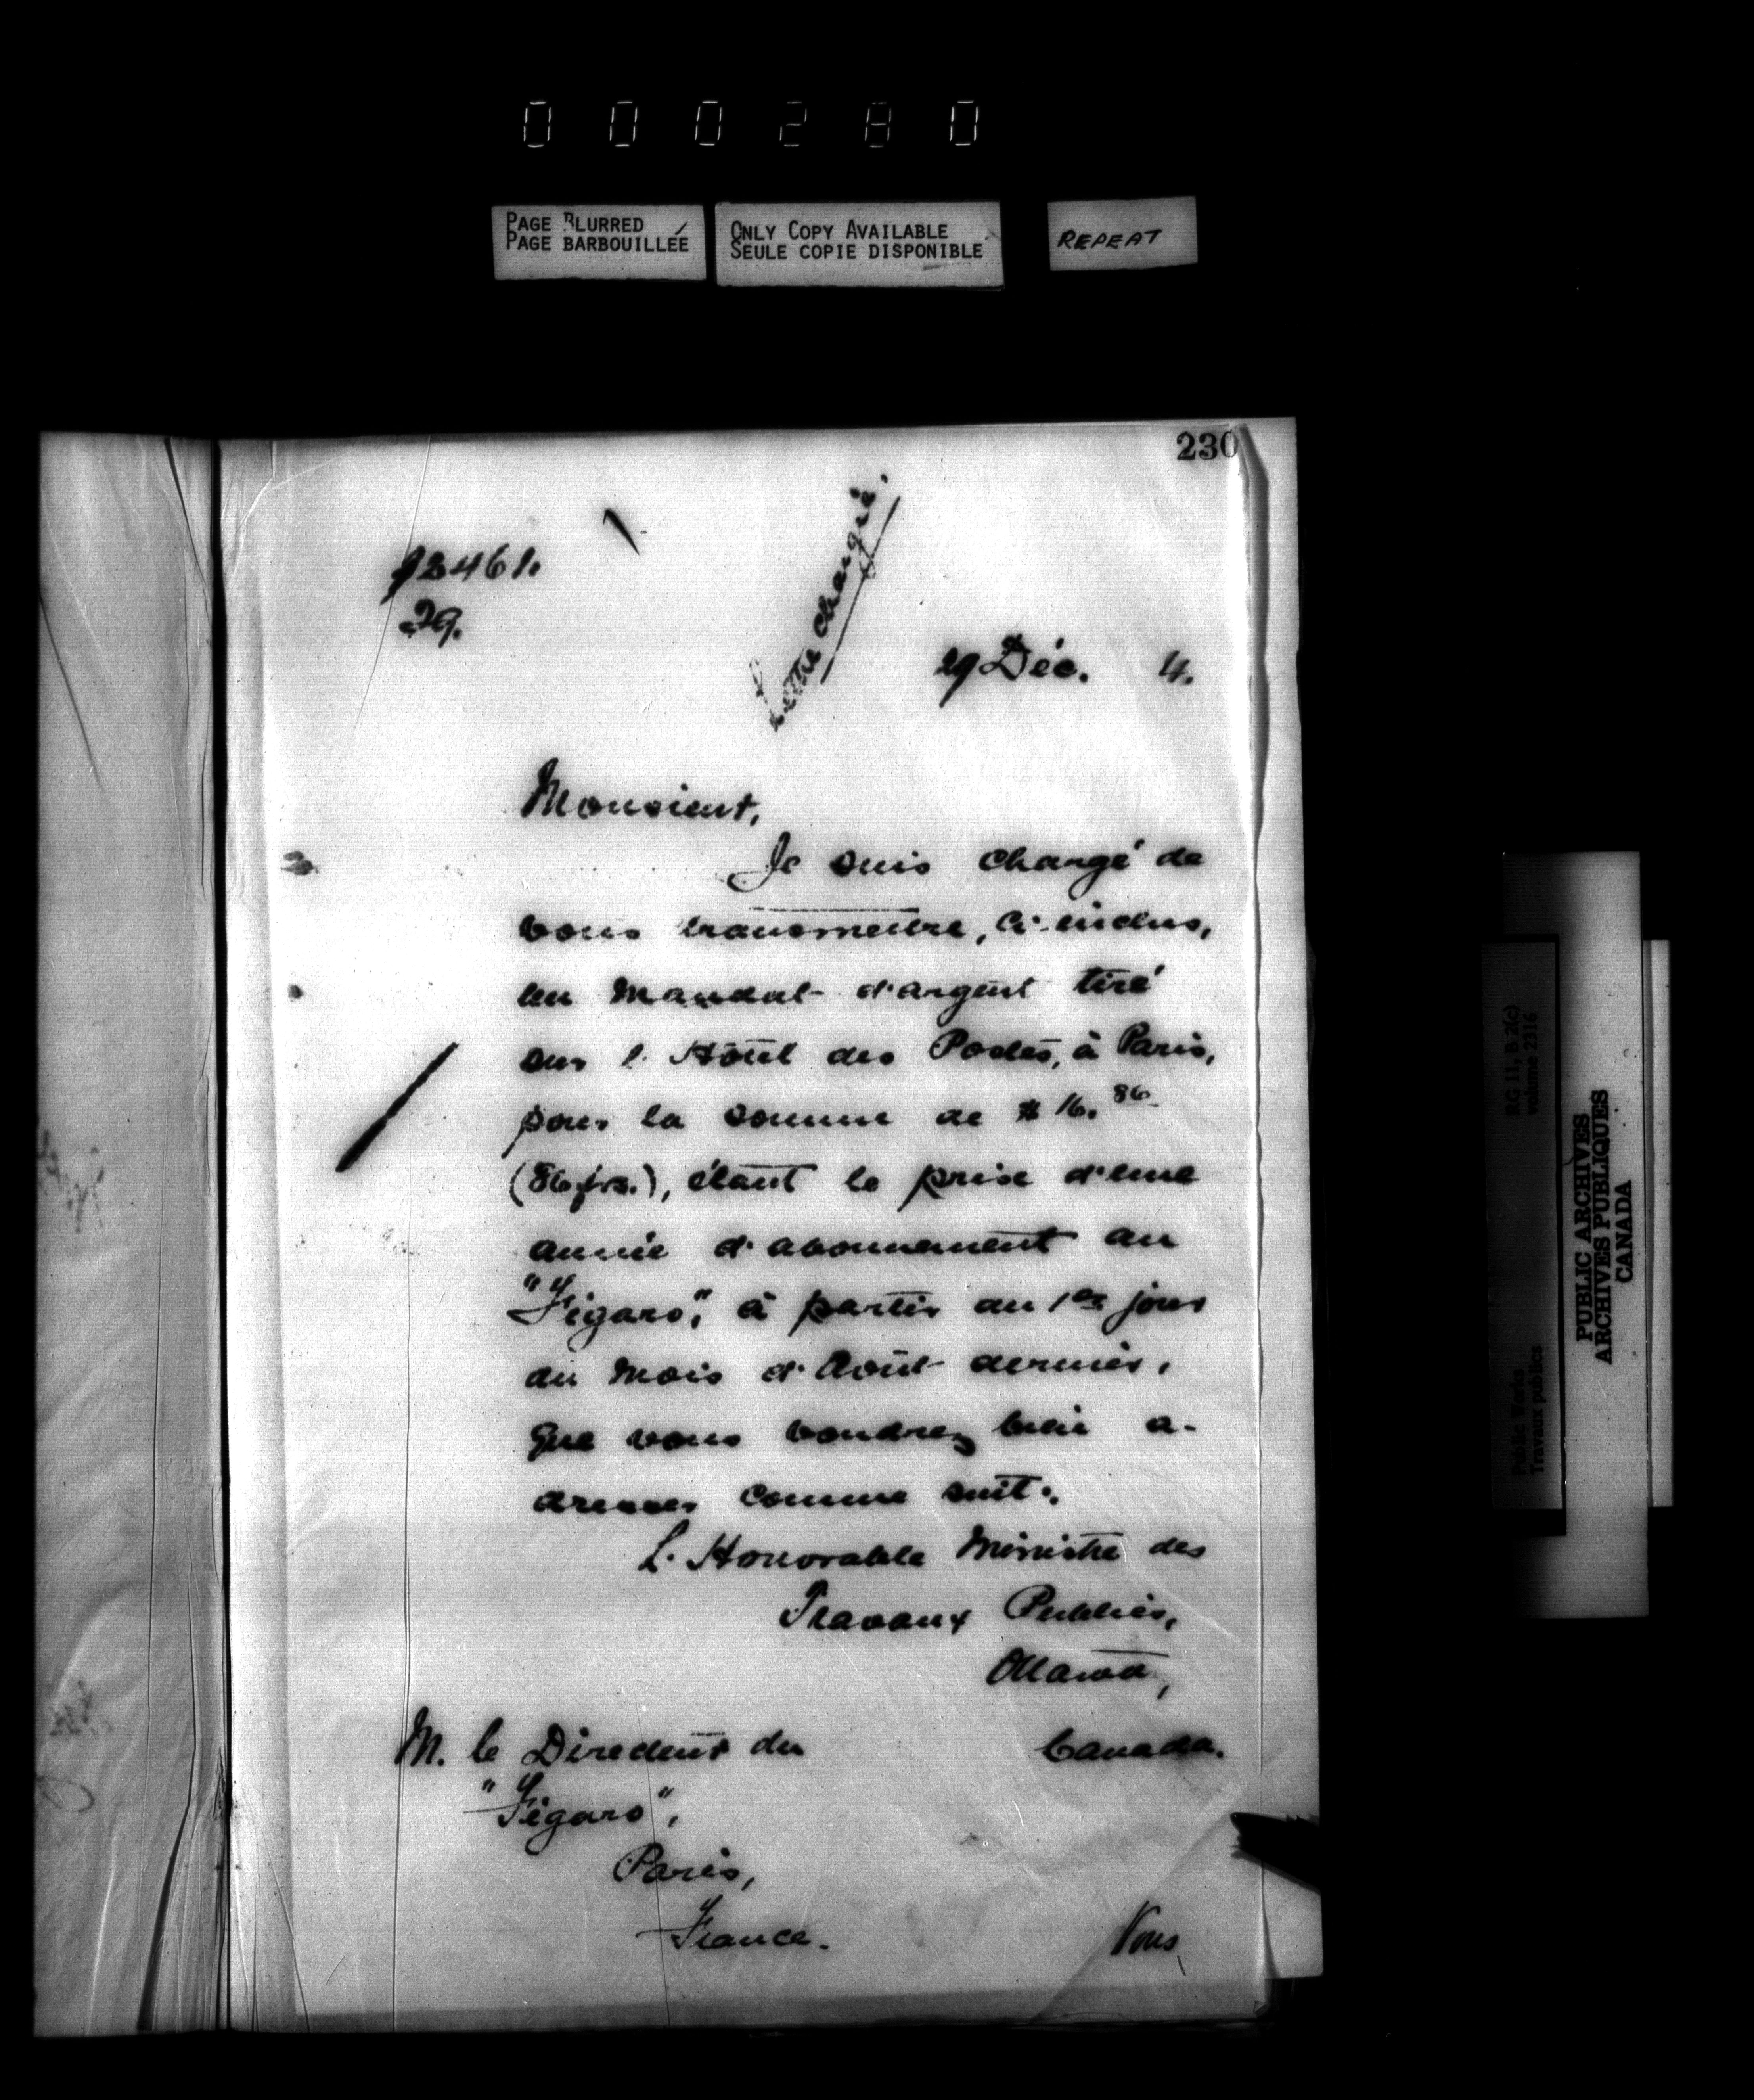 000280
PAGE BLURRED
PAGE BARBOUILLÉE
ONLY COPY AVAILABLE
SEULE COPIE DISPONIBLE
REPEAT
230
12461.
29.
Lettre chargée.
29 Déc. 4.
Monsieur,
Je suis chargé de
vous transmettre, ci-inclus,
un mandat d'argent tiré
sur l'Hôtel des Postes, à Paris,
pour la somme de $16.86
(86 frs.), étant le prix d'une
année d'abonnement au
"Figaro", à partir du 1er jour
du mois d'Août dernier,
que vous voudrez bien a-
dresser comme suit:
L'Honorable Ministre des
Travaux Publics,
Ottawa,
Canada.
M. le Directeur du
"Figaro",
Paris,
France.
Vous
RG 11, B 2(c)
volume 2316
Public Works
Travaux publics
PUBLIC ARCHIVES
ARCHIVES PUBLIQUES
CANADA